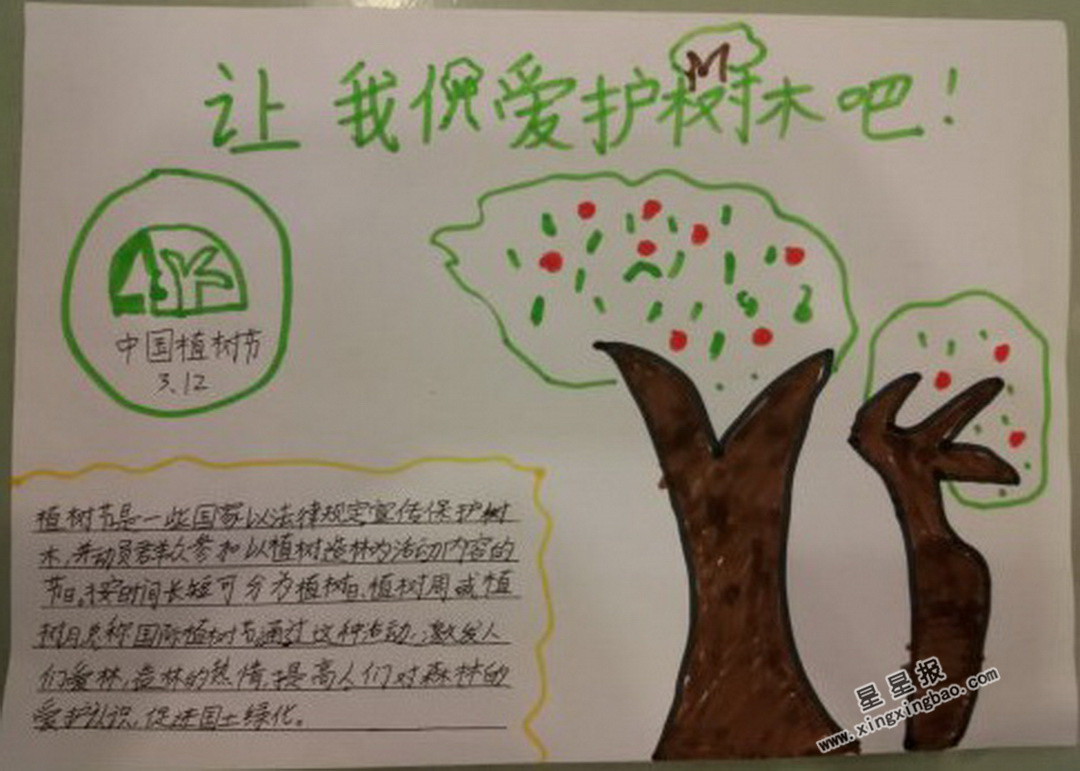 让我们爱护树木吧!
中国植树节
3.12
植树节是一些国家以法律规定宣传保护树
木,并动员群众参和以植树造林为活动内容的
节日。按时间长短可分为植树日、植树周或植
树月总称国际植树节通过这种活动,激发人
们爱林,造林的热情,提高人们对森林的
爱护认识,促进国土绿化。
星星报
www.xingxingbao.com